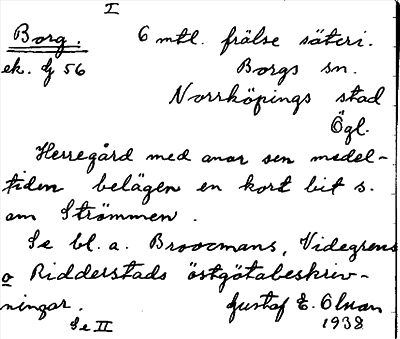 I
Borg. 6 mtl. frälse säteri.
ek. dj 56 Borgs sn.
Norrköpings stad
Ögl.
Herregård med anor sen medel-
tiden belägen en kort bit s.
om Strömmen.
Se bl. a. Broocmans, Videgrens
o Ridderstads östgötabeskriv-
ningar. Gustaf E. Olman
Se II 1938